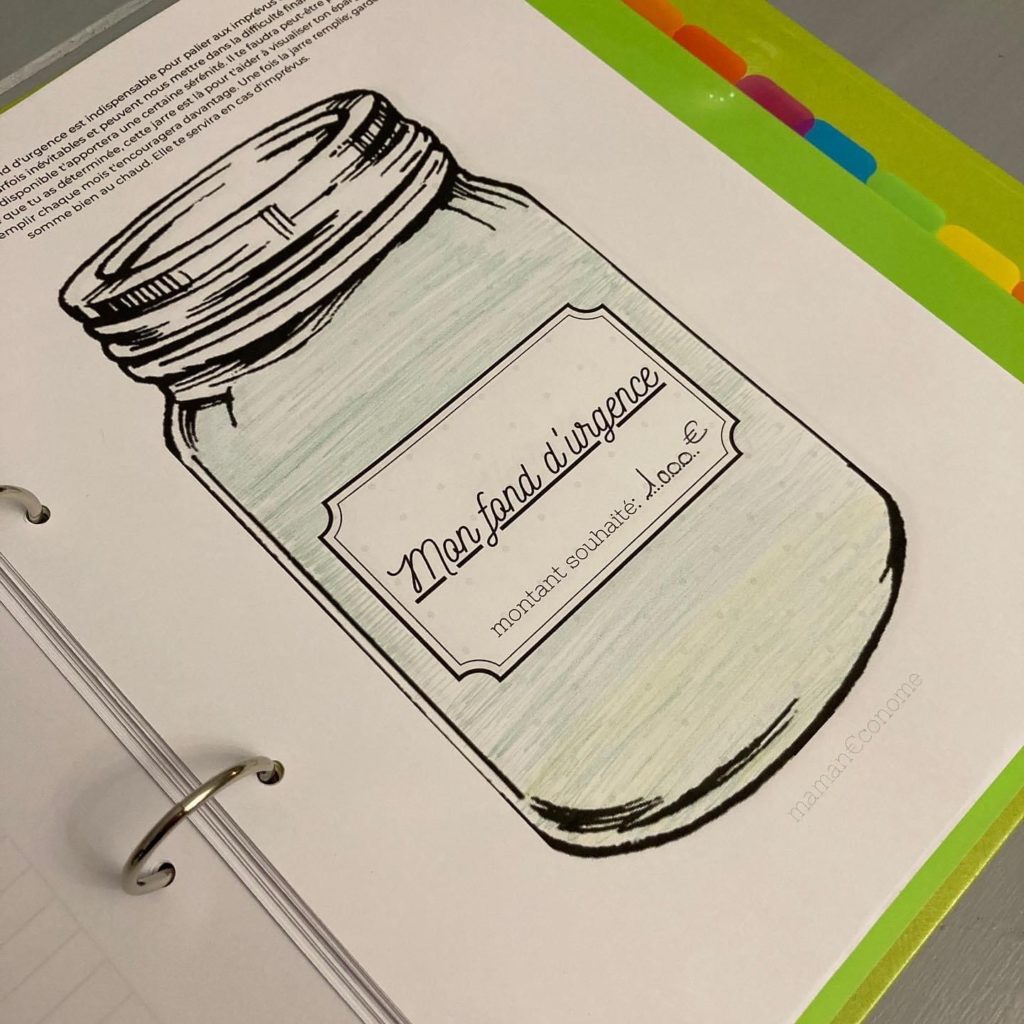 d'urgence est indispensable pour palier aux imprévus
inévitables et peuvent nous mettre dans la difficulté
disponible t'apportera une certaine sérénité. Il te faudra peut-être
que tu as déterminée, cette jarre est là pour t'aider à visualiser ton
chaque mois t'encouragera davantage. Une fois la jarre remplie,
somme bien au chaud. Elle te servira en cas d'imprévus.
Mon fond d'urgence
montant souhaité: 1.000.€
maman€conome